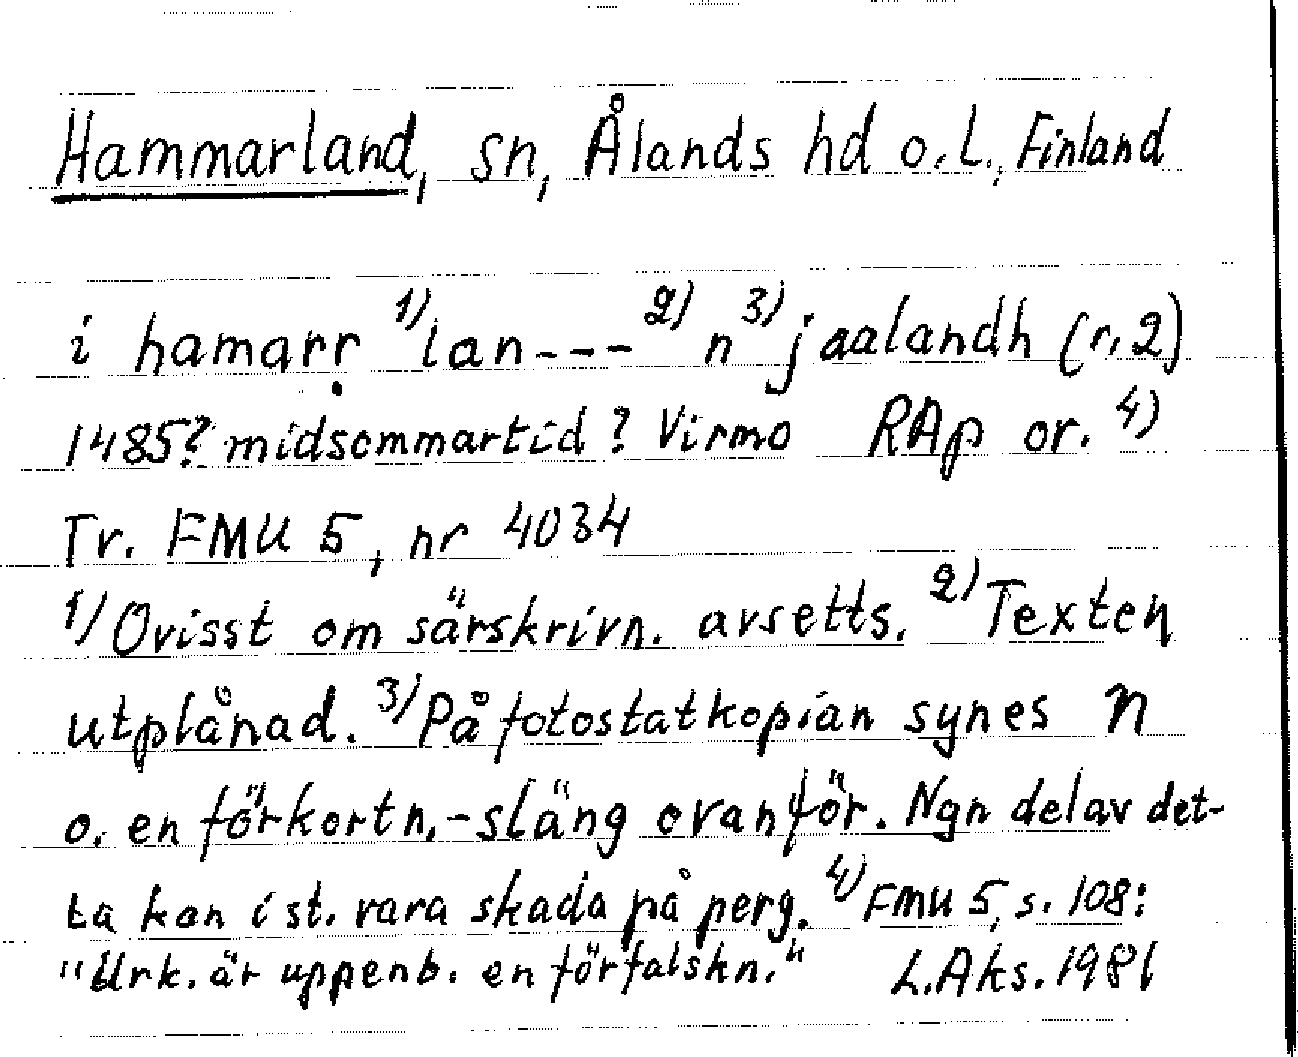 Hammarland, sn, Ålands hd o. L., Finland
i hamarṛ ¹⁾lan--- ²⁾ n³⁾ jaalandh (r. 2)
1485? midsommartid? Virmo RAp or. ⁴⁾
Tr. FMU 5, nr 4034
¹⁾Ovisst om särskrivn. avsetts. ²⁾Texten
utplånad. ³⁾På fotostatkopian synes n
o. en förkortn.-släng ovanför. Ngn del av det-
ta kan i st. vara skada på perg. ⁴⁾FMU 5, s. 108:
"Urk. är uppenb. en förfalskn." L. Aks. 1981